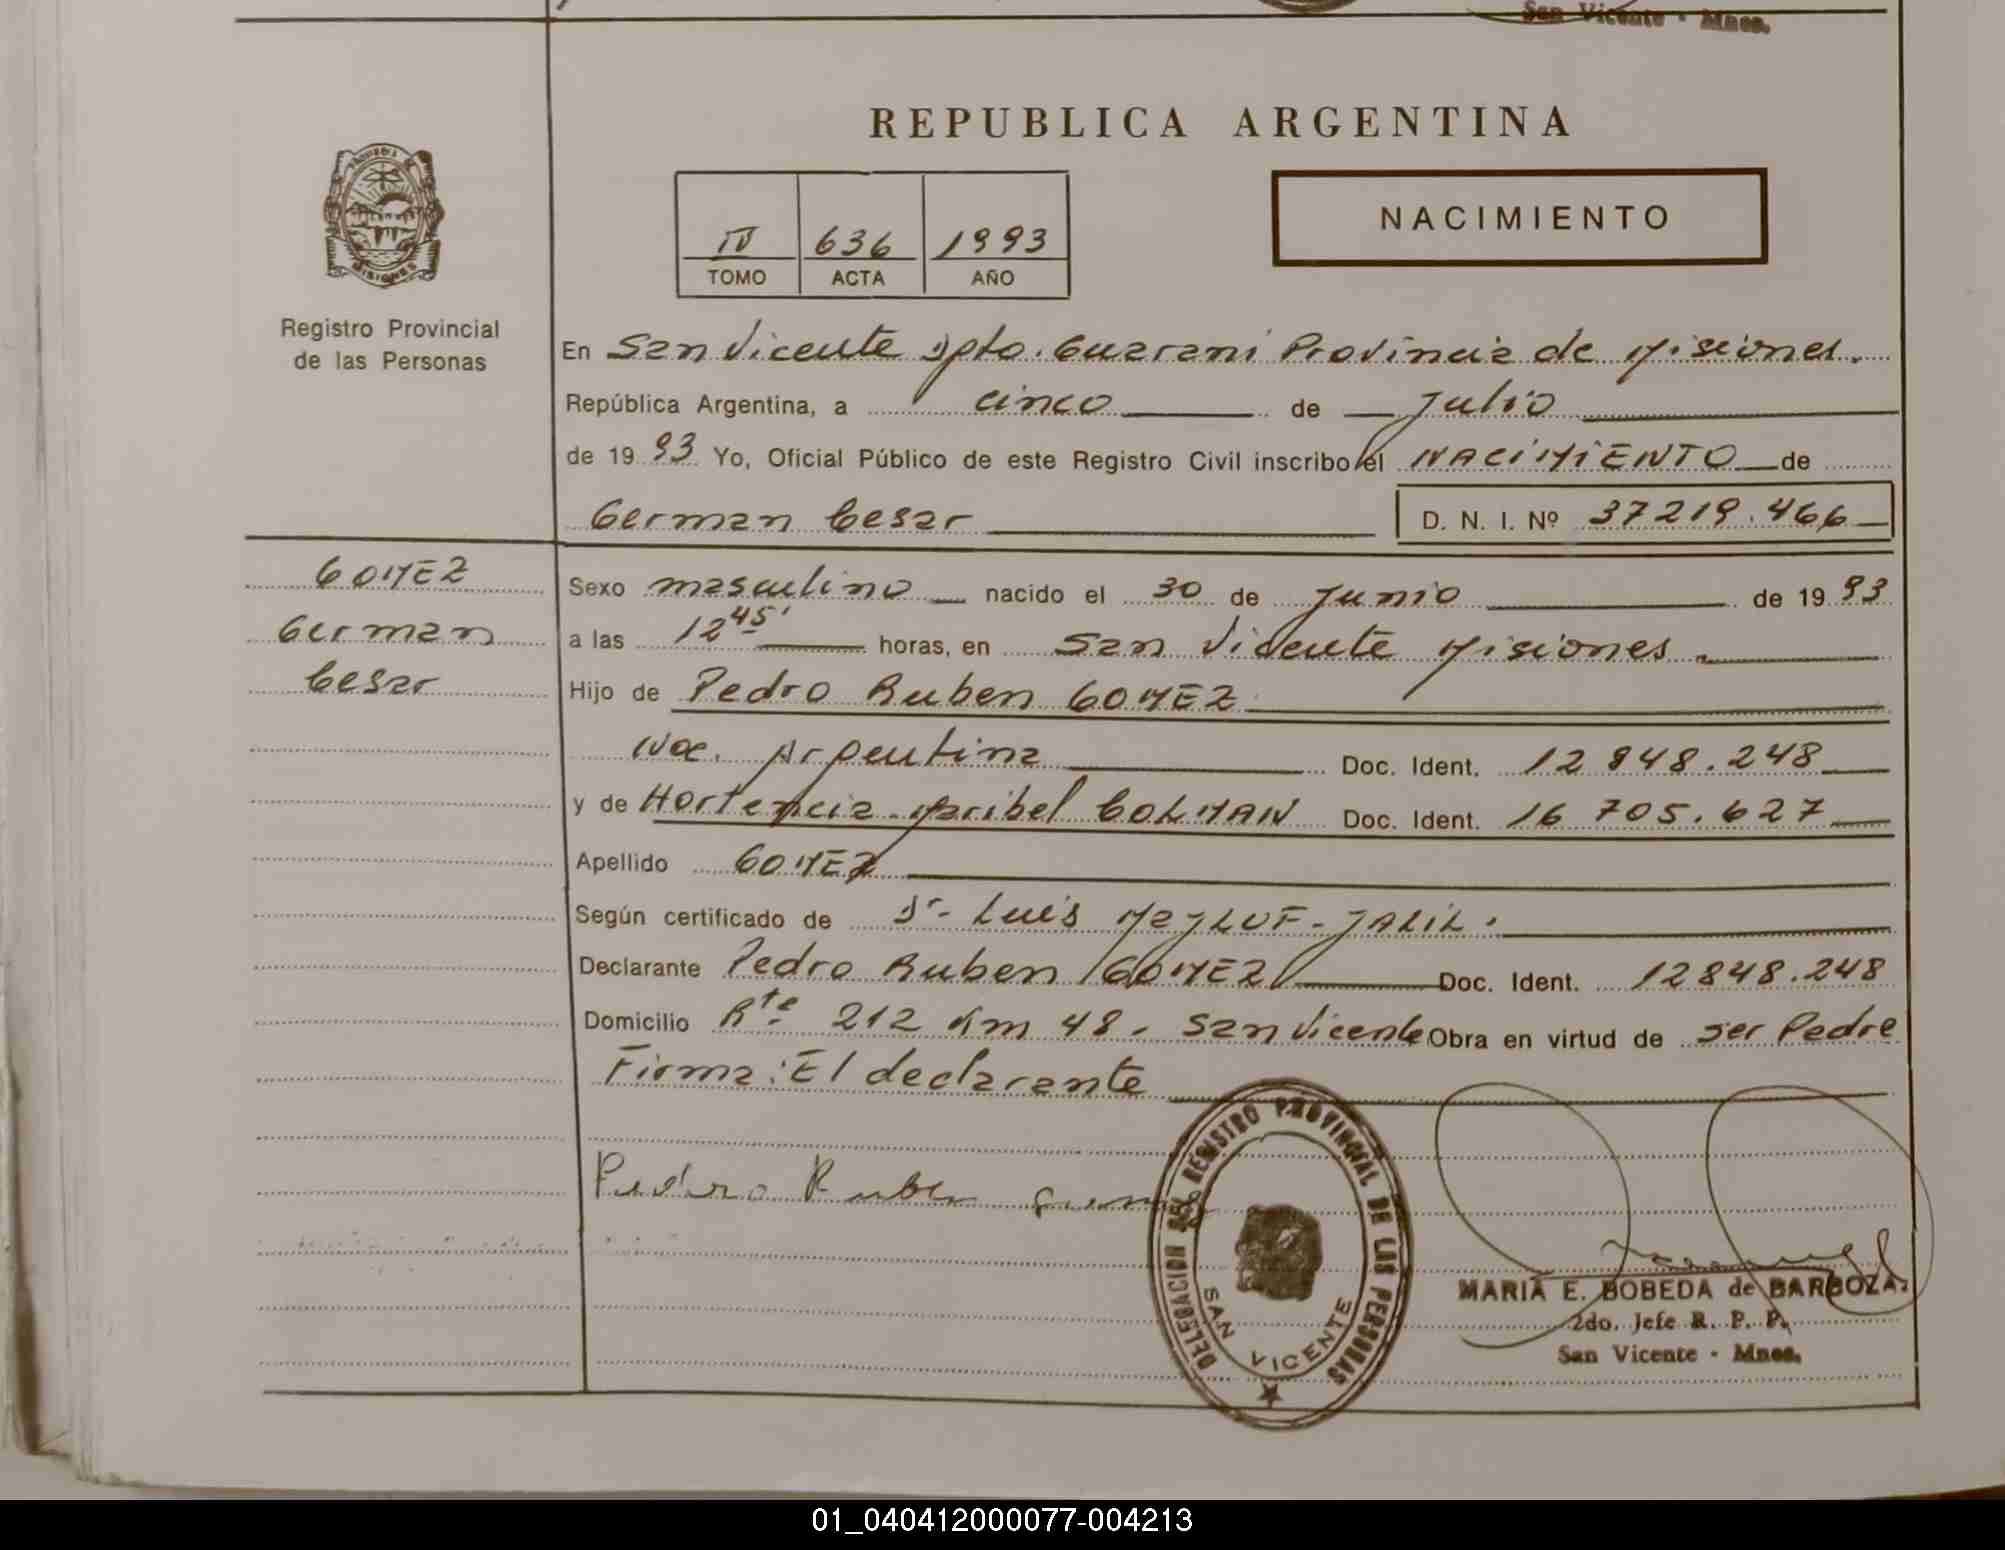 San Vicente - Mnes.
REPUBLICA ARGENTINA
PROVINCIA DE
MISIONES
Registro Provincial
de las Personas
IV 636 1993
TOMO ACTA AÑO
NACIMIENTO
En San Vicente Dpto. Guarani Provincia de Misiones.
República Argentina, a cinco de Julio
de 19 93 Yo, Oficial Público de este Registro Civil inscribo el NACIMIENTO de
German Cesar D. N. I. Nº 37219.466
GOMEZ
German
Cesar
Sexo masculino nacido el 30 de Junio de 19 93
a las 12 45' horas, en San Vicente Misiones.
Hijo de Pedro Ruben GOMEZ
Nac. Argentina Doc. Ident. 12 848.248
y de Hortencia Maribel COLMAN Doc. Ident. 16 705.627
Apellido GOMEZ
Según certificado de Dr- Luis MaJLUF-JALIL.
Declarante Pedro Ruben GOMEZ Doc. Ident. 12848.248
Domicilio Rta 212 Km 48- San Vicente Obra en virtud de ser Padre
Firma: El declarante
Pedro Ruben gomez
DELEGACION DEL REGISTRO PROVINCIAL DE LAS PERSONAS
SAN VICENTE
MARIA E. BOBEDA de BARBOZA.
2do. Jefe R. P. P.
San Vicente - Mnes.
01_040412000077-004213